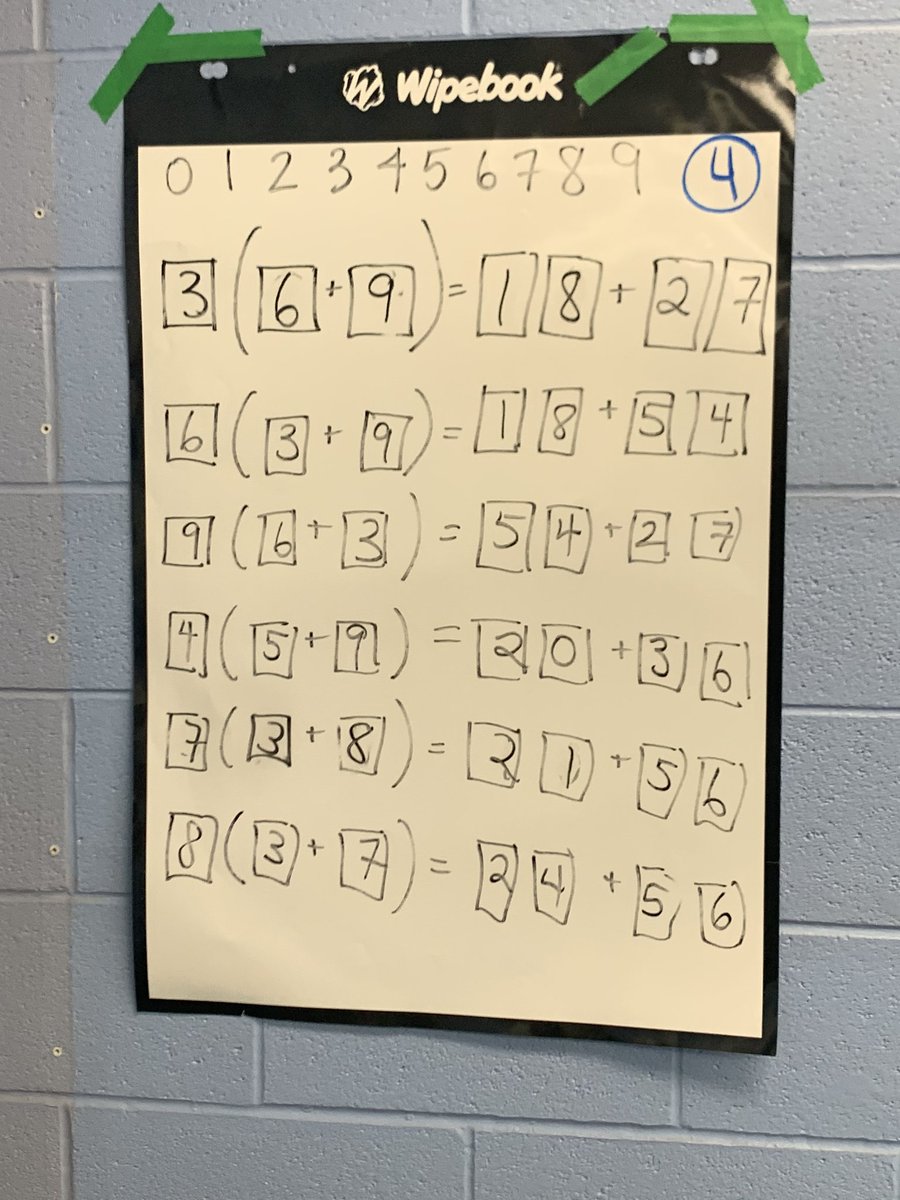 Wipebook
0 1 2 3 4 5 6 7 8 9 4
3 (6 + 9) = 1 8 + 2 7
6 (3 + 9) = 1 8 + 5 4
9 (6 + 3) = 5 4 + 2 7
4 (5 + 9) = 2 0 + 3 6
7 (3 + 8) = 2 1 + 5 6
8 (3 + 7) = 2 4 + 5 6